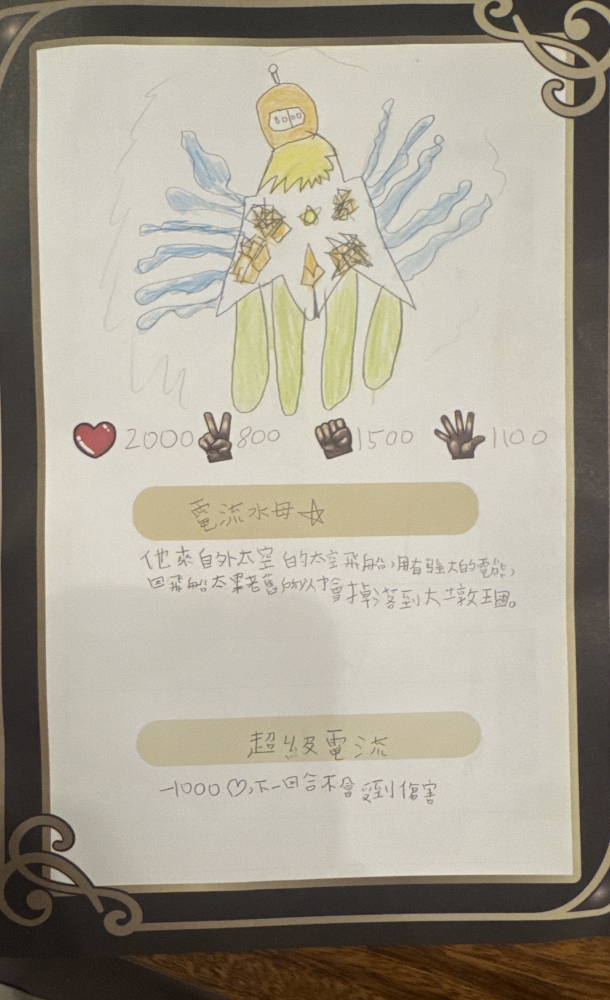 2000 800 1500 1100
電流水母☆
他來自外太空的太空飛船,擁有強大的電能,
因飛船太老舊所以才會掉落到大墩王國。
超級電流
-1000♡,下一回合不會受到傷害